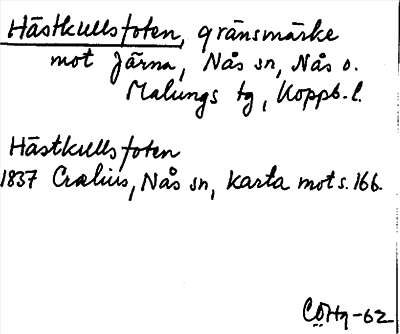 Hästkullsfoten, gränsmärke
mot Järna, Nås sn, Nås o.
Malungs tg, Koppb. l.
Hästkullsfoten
1837 Crælius, Nås sn, karta mot s. 166.
CÖHg-62